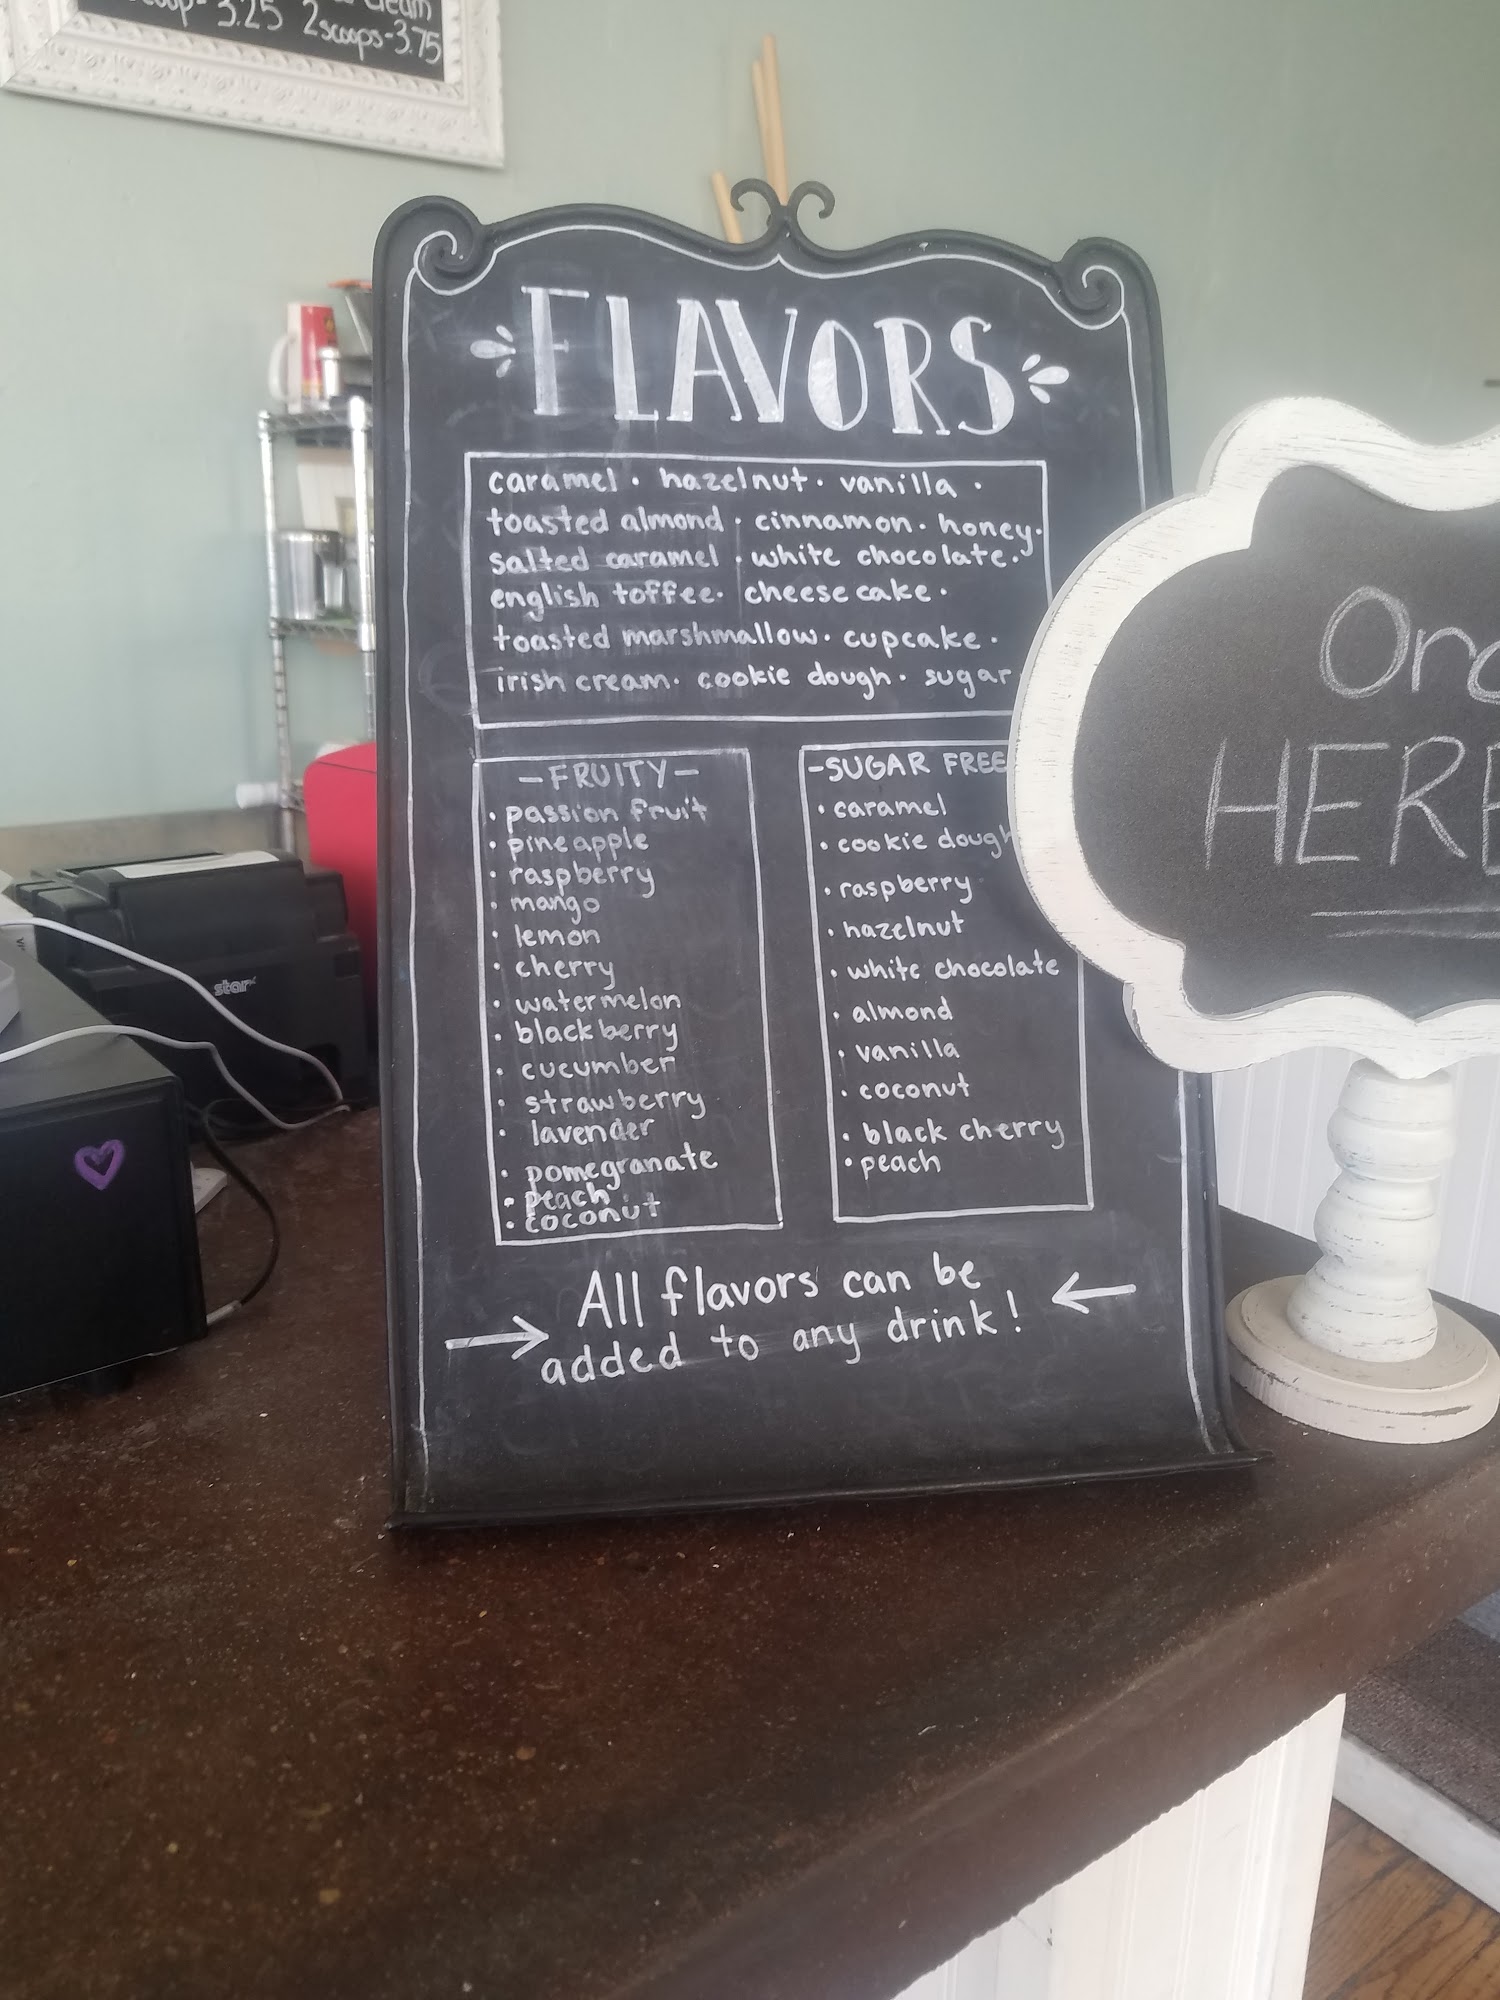 3.25 2scoops-3.75
FLAVORS
caramel · hazelnut · vanilla ·
toasted almond · cinnamon · honey·
salted caramel · white chocolate.
english toffee· cheesecake·
toasted marshmallow· cupcake·
irish cream· cookie dough· sugar
-FRUITY-
· passion fruit
· pineapple
· raspberry
· mango
· lemon
· cherry
· watermelon
· blackberry
· cucumber
· strawberry
· lavender
· pomegranate
· peach
· coconut
-SUGAR FREE
· caramel
· cookie dough
· raspberry
· hazelnut
· white chocolate
· almond
· vanilla
· coconut
· black cherry
· peach
All flavors can be
added to any drink!
HERE
star